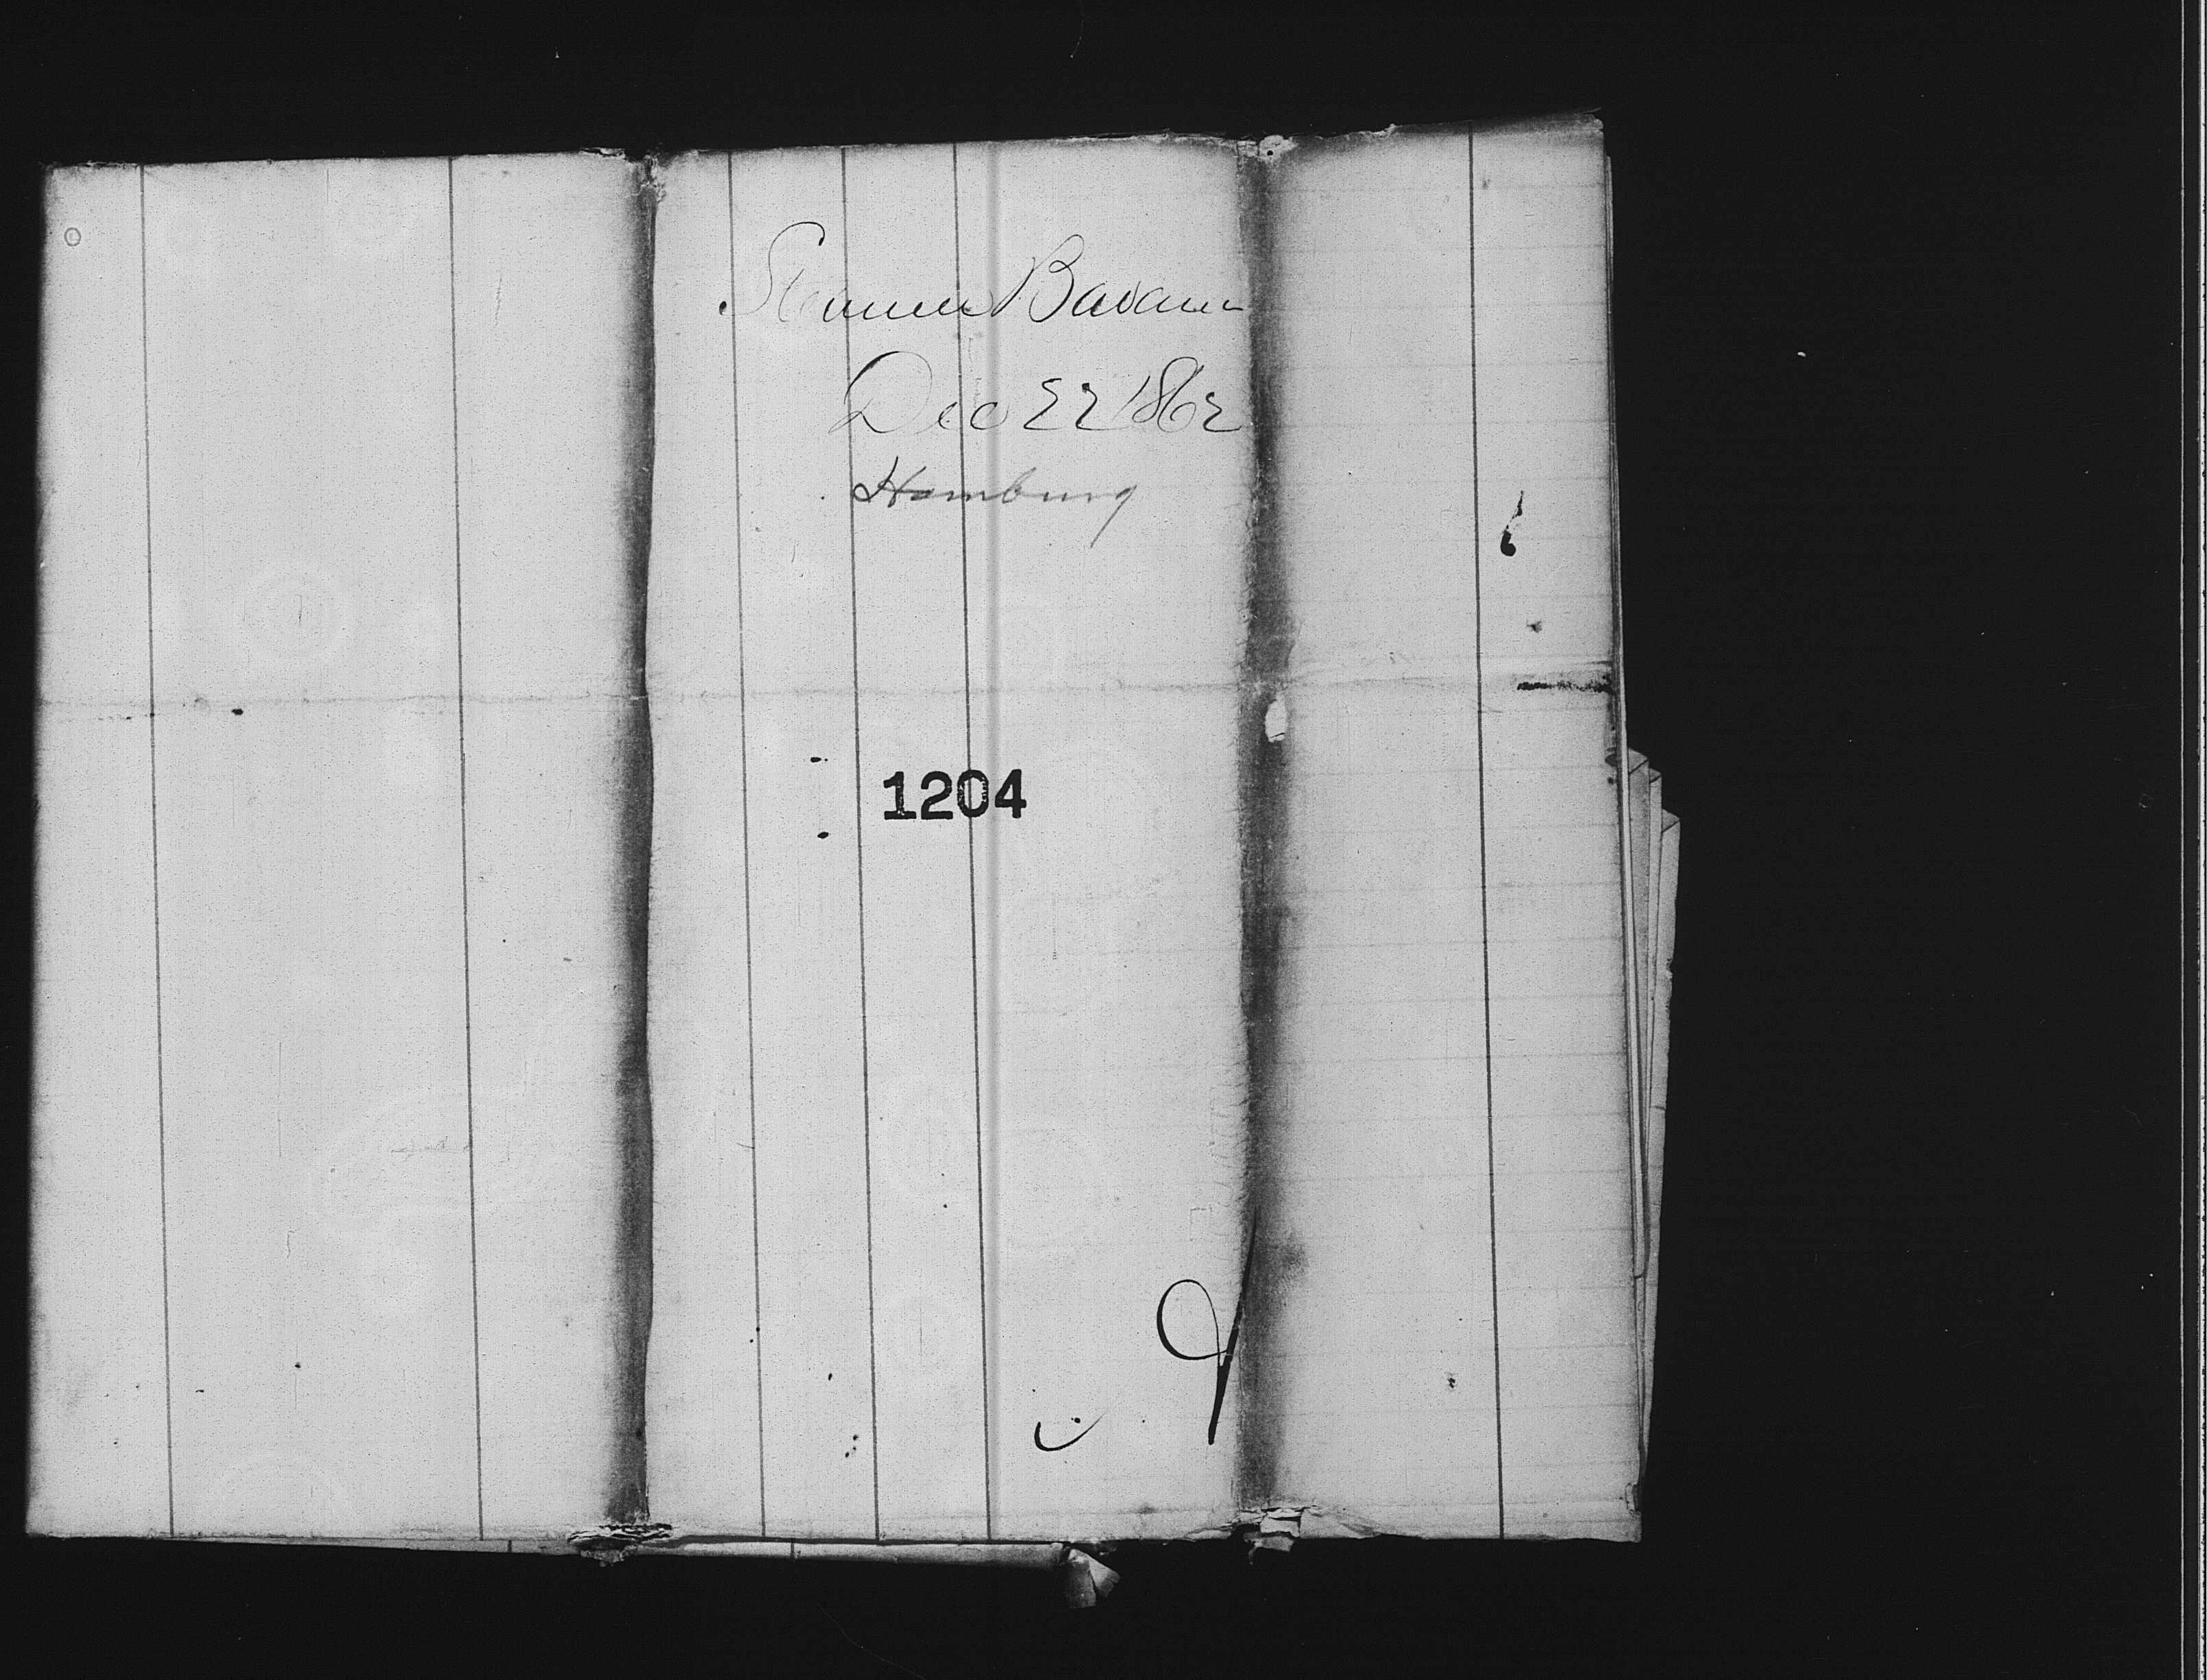 Steamer Bavaria
Dec 22 1862
Hamburg
1204